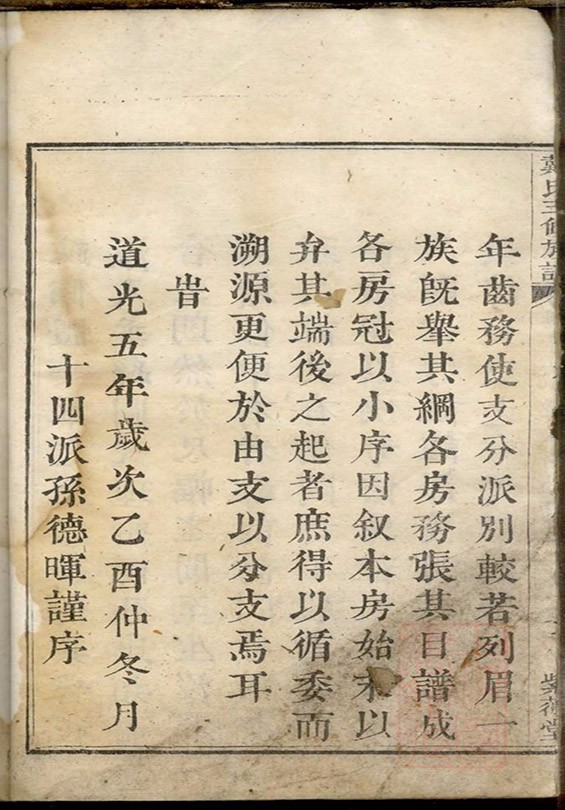 年齒務使支分派別較若列眉一
族旣舉其綱各房務張其目譜成
各房冠以小序因叙本房始末以
弁其端後之起者庶得以循委而
溯源更便於由支以分支焉耳
旹
道光五年歲次乙酉仲冬月
十四派孫德暉謹序
氏三修族譜
堂